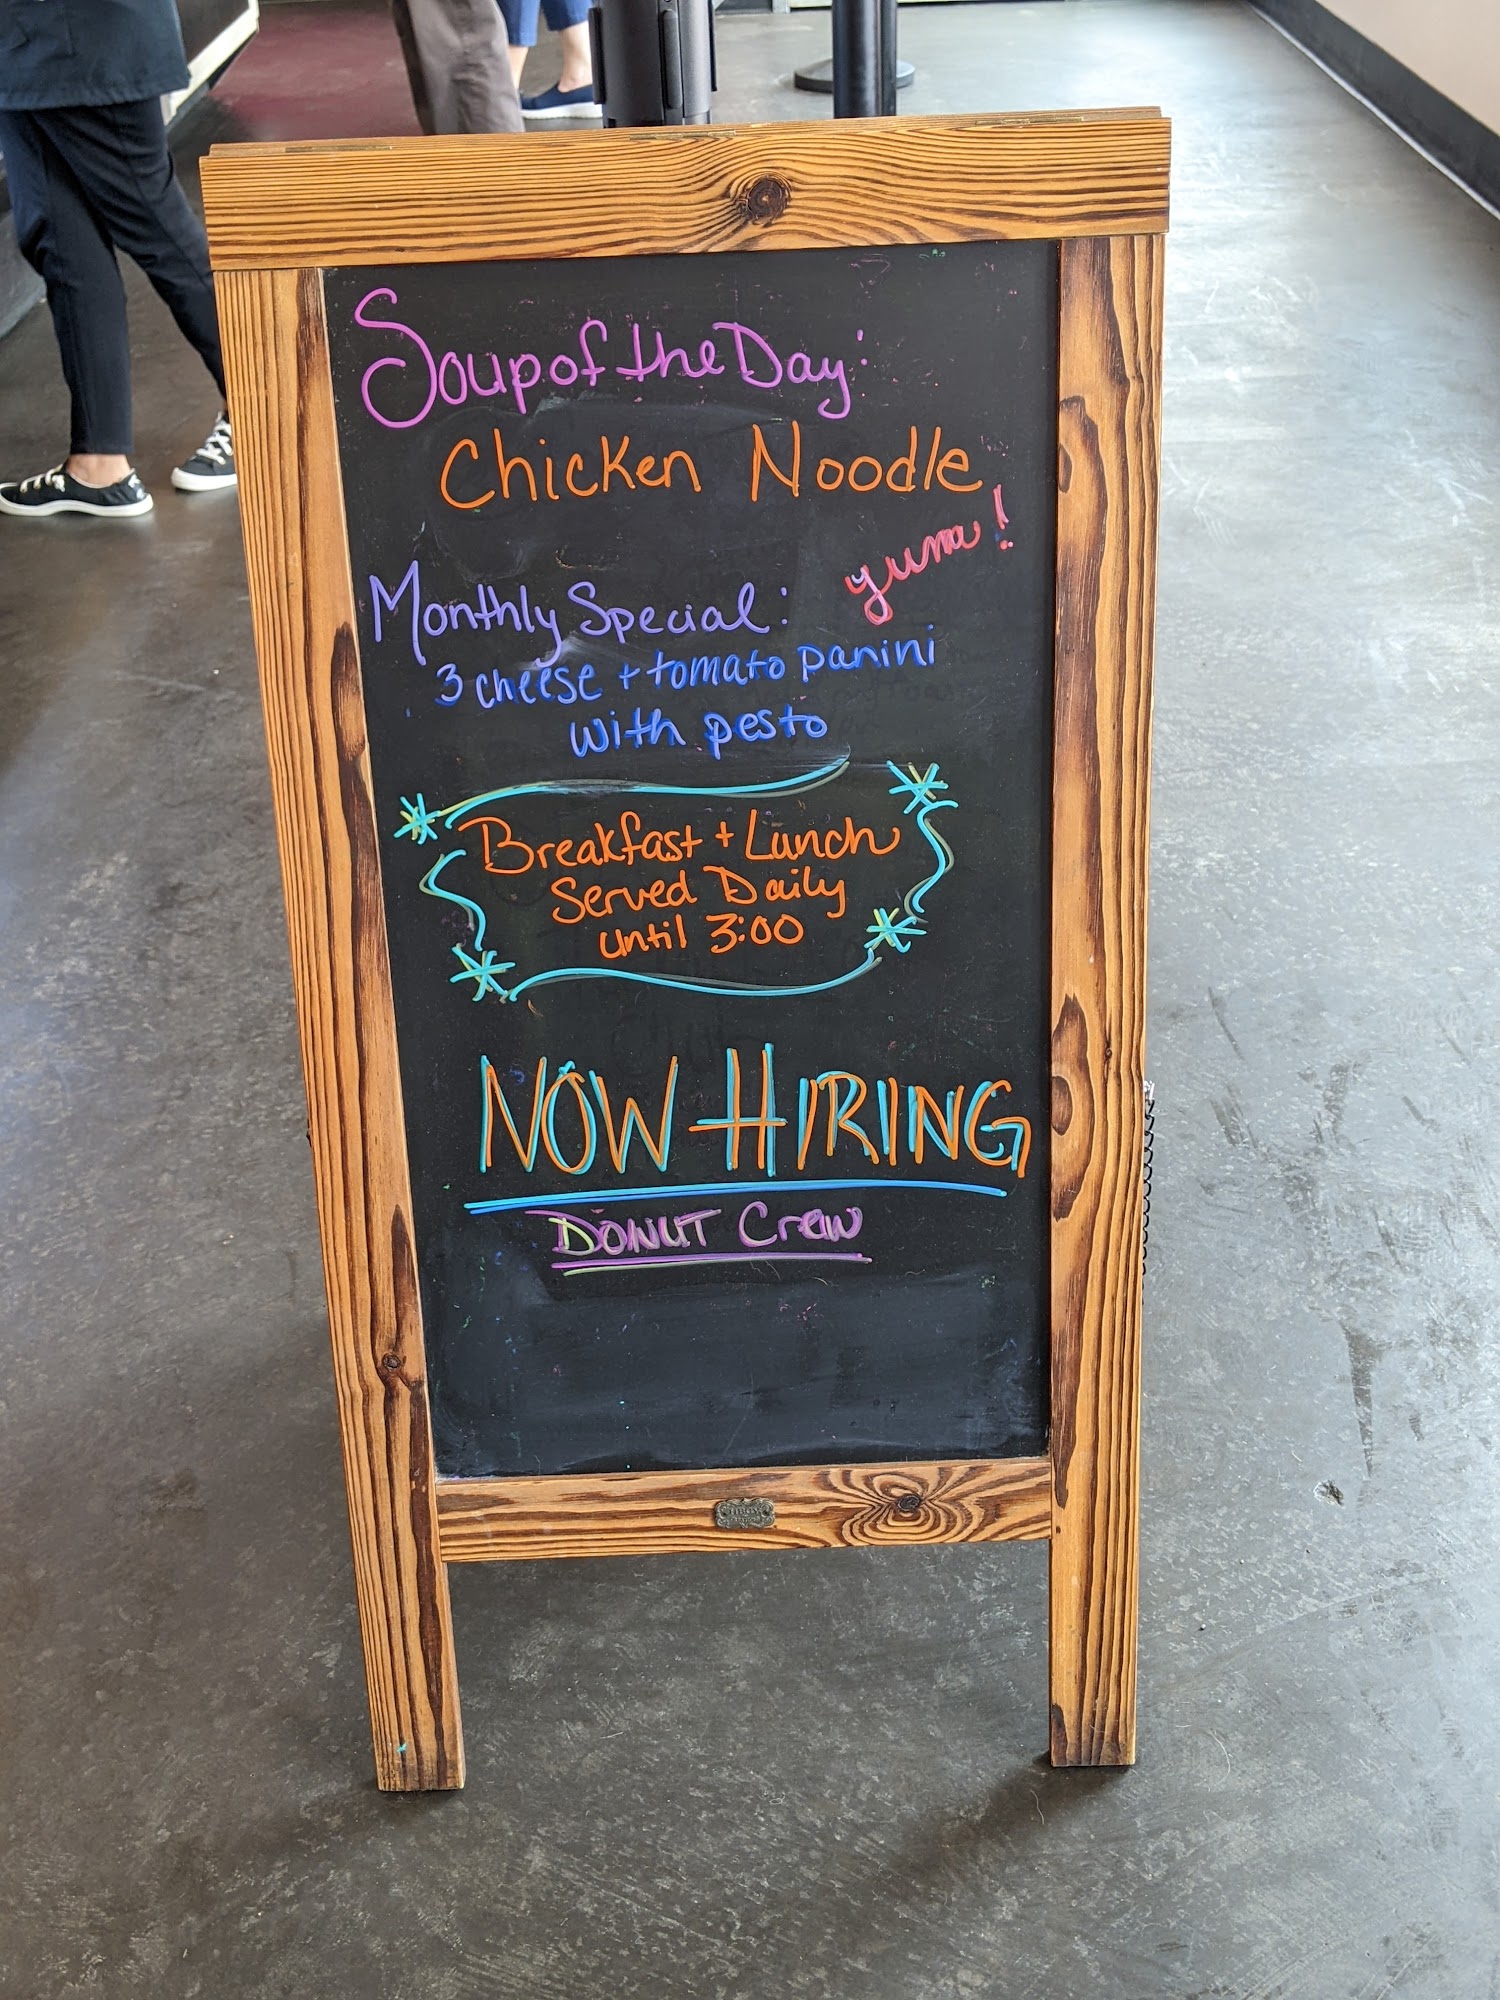 Soup of the Day:
Chicken Noodle
yum!
Monthly Special:
3 cheese + tomato panini
with pesto
Breakfast + Lunch
Served Daily
until 3:00
NOW HIRING
DONUT Crew